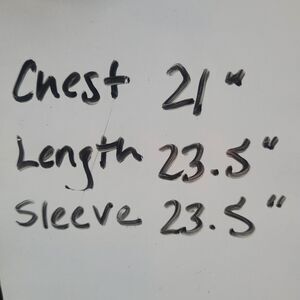 Chest 21"
Length 23.5"
Sleeve 23.5"